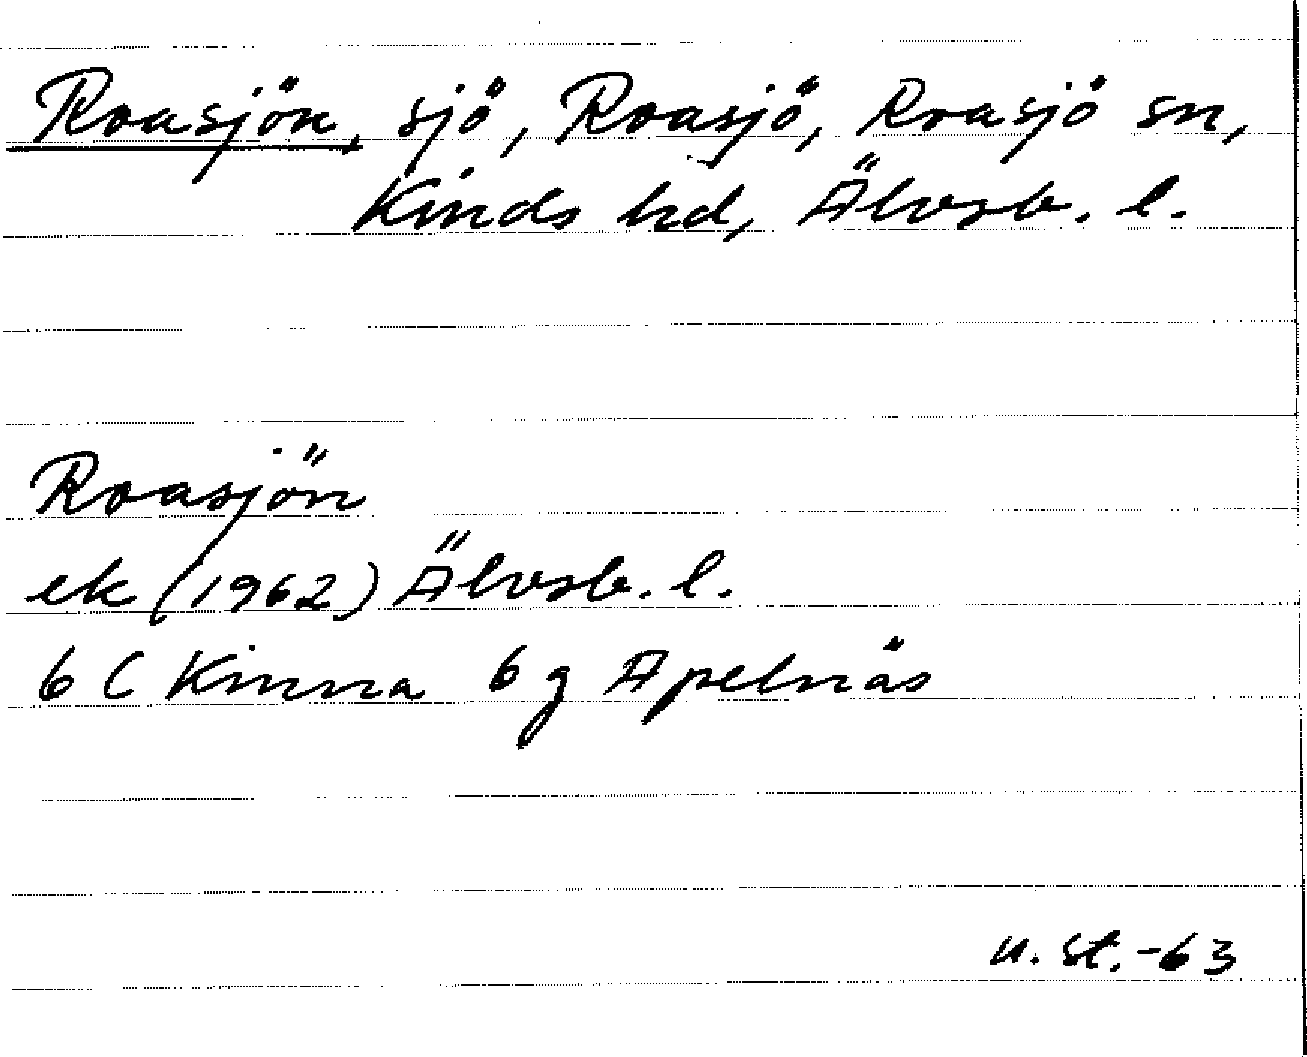 Roasjön, sjö, Roasjö, Roasjö sn,
Kinds hd, Älvsb. l.
Roasjön
ek (1962) Älvsb. l.
6 C Kinna 6 g Apelnäs
u. st. -63